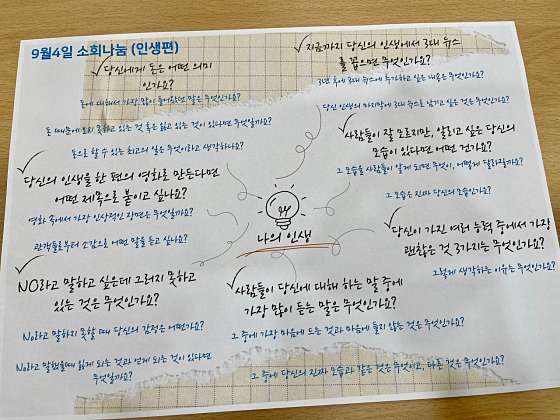 9월4일 소회나눔 (인생편)
당신에게 돈은 어떤 의미
인가요?
돈에 대해서 가장 많이 들어왔던 말은 무엇인가요?
돈 때문에 하지 못하고 있는 것 혹은 잃고 있는 것이 있다면 무엇일까요?
돈으로 할 수 있는 최고의 일은 무엇이라고 생각하나요?
지금까지 당신의 인생에서 3대 뉴스
를 꼽으면 무엇인가요?
3년 후에 3대 뉴스에 추가하고 싶은 내용은 무엇인가요?
당신 인생의 마지막에 3대 뉴스로 남기고 싶은 것은 무엇인가요?
사람들이 잘 모르지만, 알리고 싶은 당신의
모습이 있다면 어떤 건가요?
그 모습을 사람들이 알게 되면 무엇이, 어떻게 달라질까요?
그 모습은 진짜 당신의 모습인가요?
당신의 인생을 한 편의 영화로 만든다면
어떤 제목으로 붙이고 싶나요?
영화 중에서 가장 인상적인 장면은 무엇일까요?
관객들로부터 소감으로 어떤 말을 듣고 싶나요?
나의 인생
당신이 가진 여러 능력 중에서 가장
괜찮은 것 3가지는 무엇인가요?
그렇게 생각하는 이유는 무엇인가요?
NO라고 말하고 싶은데 그러지 못하고
있는 것은 무엇인가요?
No라고 말하지 못할 때 당신의 감정은 어떤가요?
No라고 말했을때 잃게 되는 것과 얻게 되는 것이 있다면
무엇일까요?
사람들이 당신에 대해 하는 말 중에
가장 많이 듣는 말은 무엇인가요?
그 중에 가장 마음에 드는 것과 마음에 들지 않는 것은 무엇인가요?
그 중에 당신의 진짜 모습과 같은 것은 무엇이고, 다른 것은 무엇인가요?